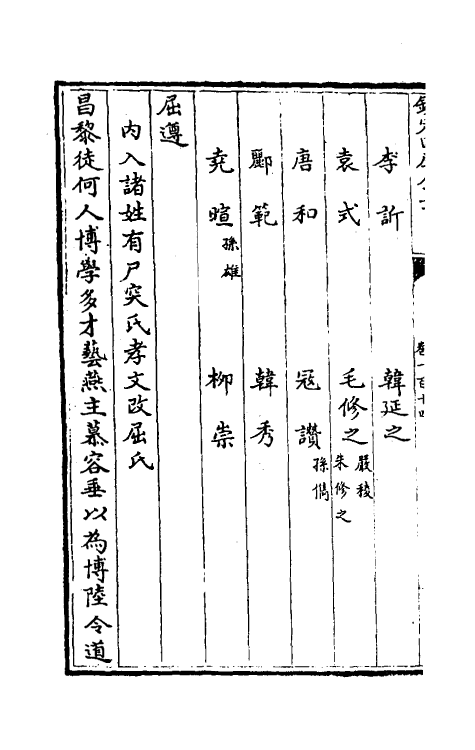 李訢　韓延之
袁式　毛修之 嚴稜 朱修之
唐和　冦讚 孫儁
酈範　韓秀
堯暄 孫雄　柳崇
屈遵
内入諸姓有尸突氏孝文改屈氏
昌黎徒何人博學多才藝燕主慕容垂以為博陸令道
卷一百十四